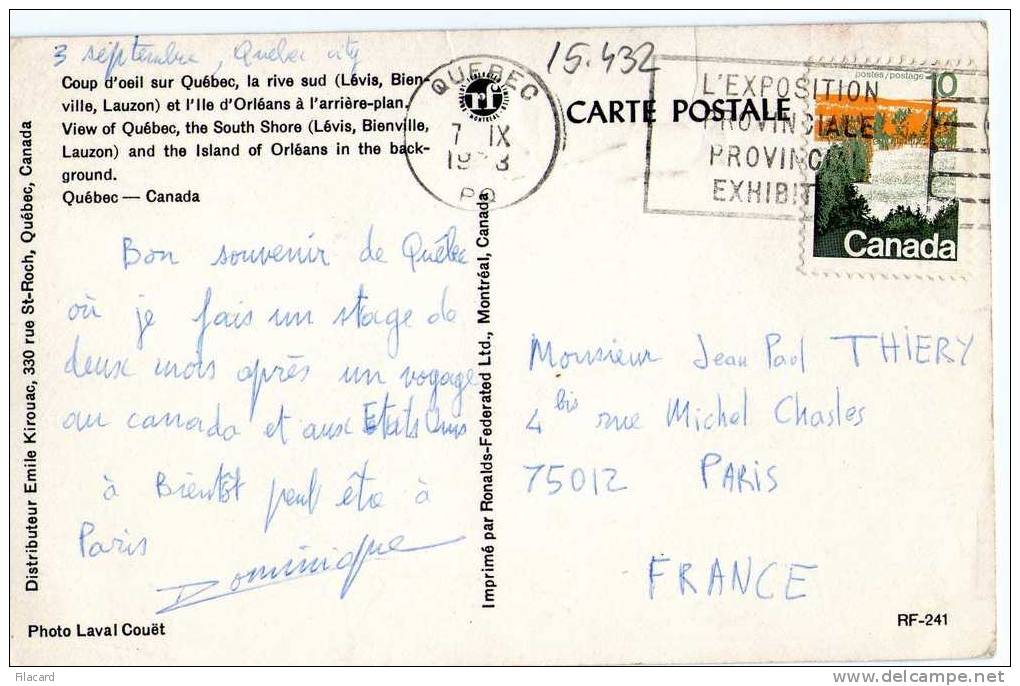 3 septembre, Quebec city
15.432
Coup d'oeil sur Québec, la rive sud (Lévis, Bien-
ville, Lauzon) et l'Ile d'Orléans à l'arrière-plan.
View of Québec, the South Shore (Lévis, Bienville,
Lauzon) and the Island of Orléans in the back-
ground.
Québec — Canada
Distributeur Emile Kirouac, 330 rue St-Roch, Québec, Canada
Bon souvenir de Québec
où je fais un stage de
deux mois après un voyage
au canada et aux Etats Unis
à Bientôt peut être à
Paris
Dominique
Photo Laval Couët
QUEBEC
7 IX
PQ
rf
Imprimé par Ronalds-Federated Ltd., Montréal, Canada
CARTE POSTALE
L'EXPOSITION
PROVINCIALE
PROVINCIAL
EXHIBIT
postes/postage 10
Canada
Monsieur Jean Paul THIERY
4 bis rue Michel Chasles
75012 PARIS
FRANCE
RF-241
Filacard
www.delcampe.net